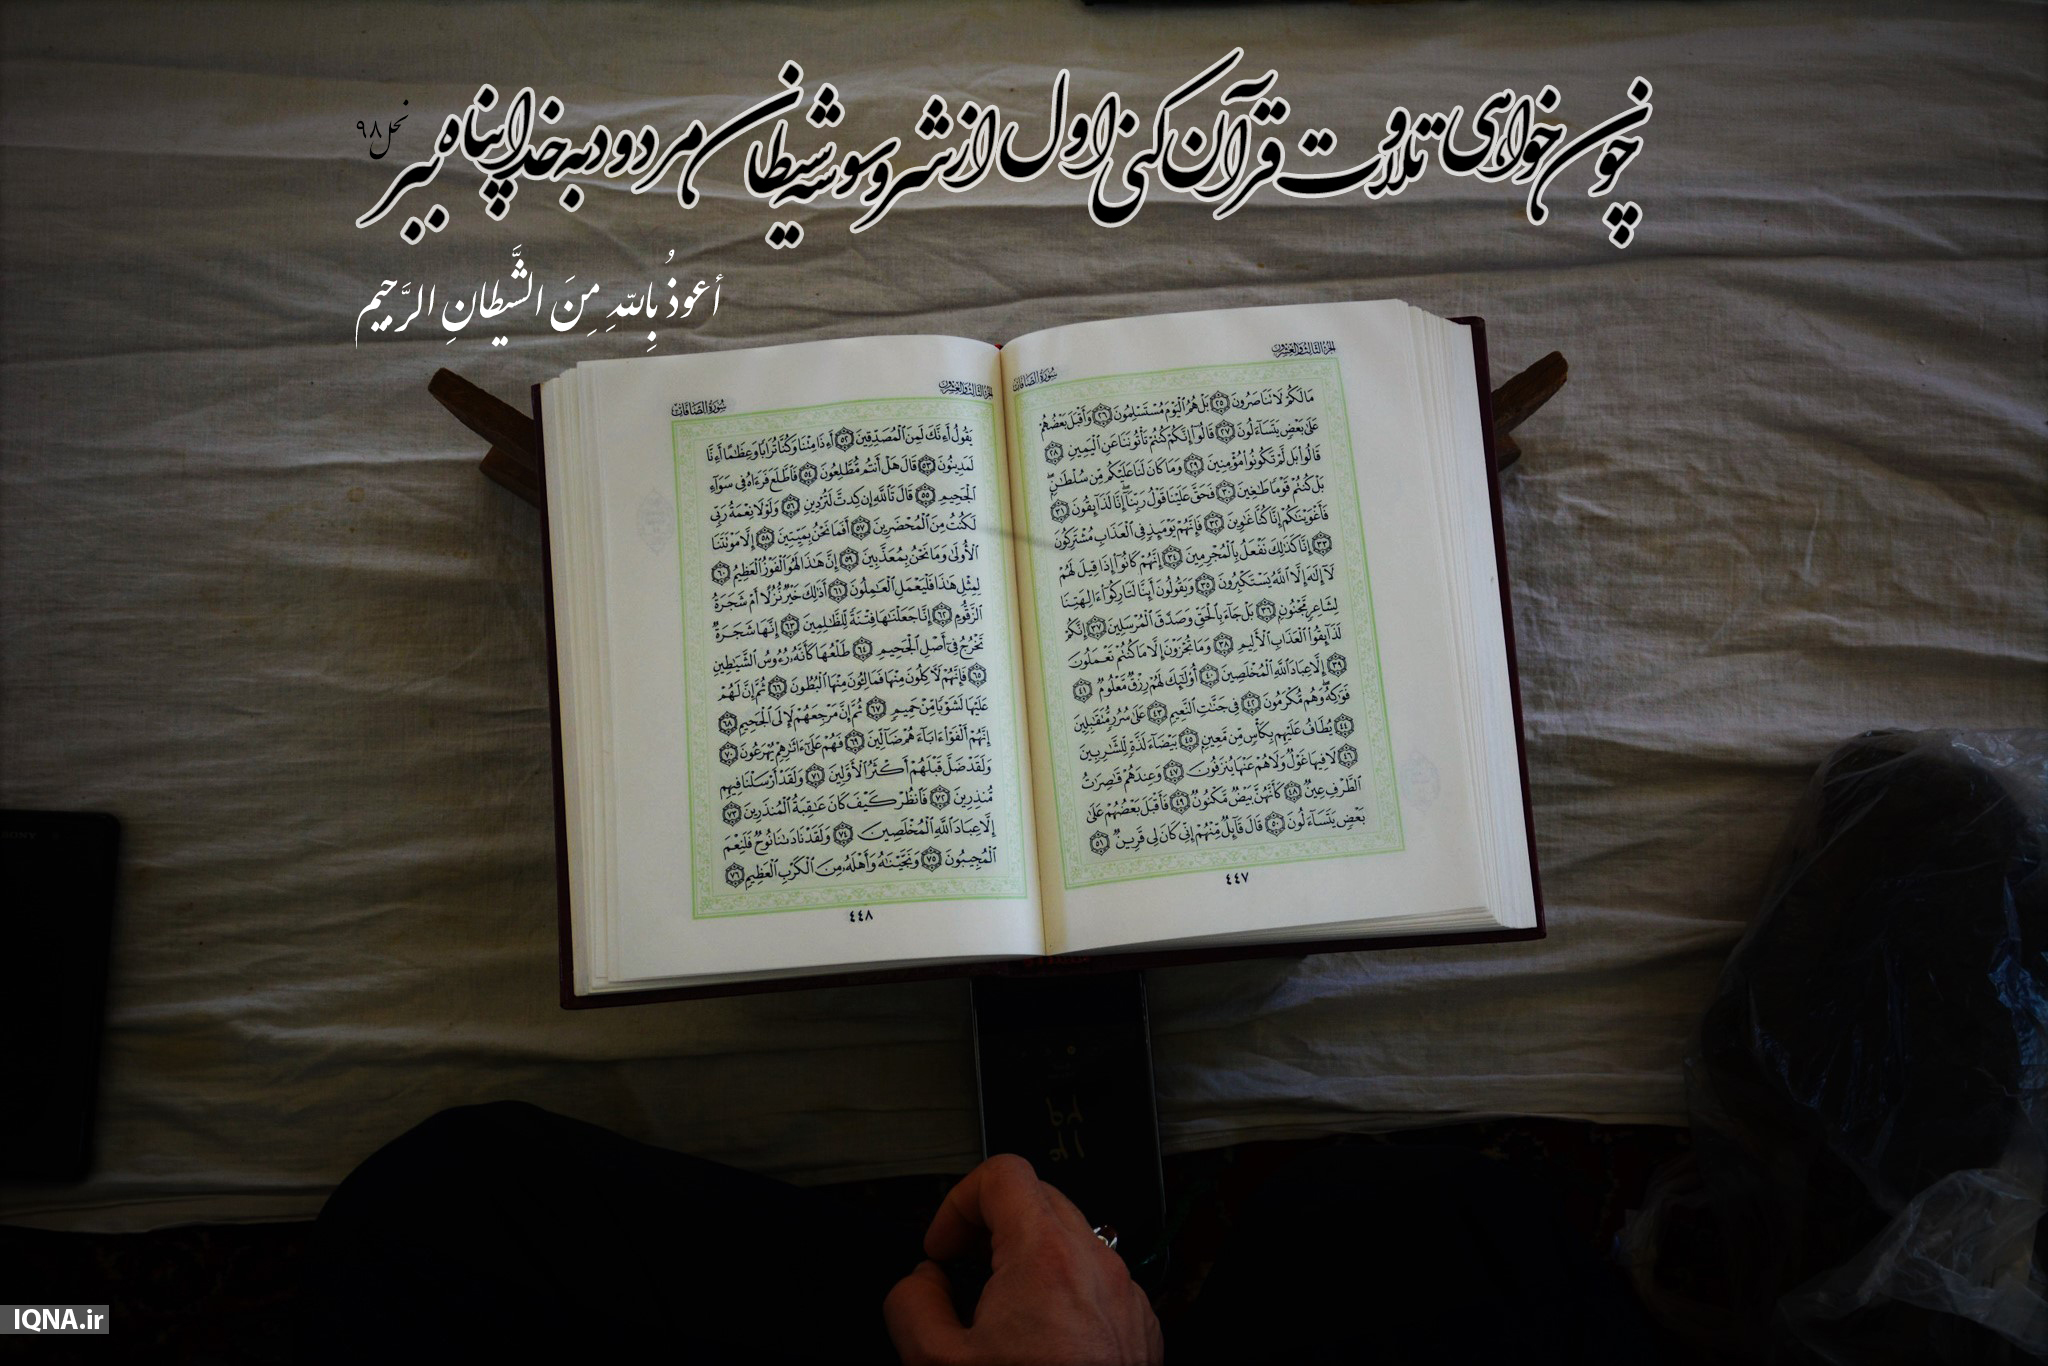 چون خواهی تلاوت قرآن کنی اول از شر وسوسه شیطان مردود به خدا پناه ببر
نحل ۹۸
أعوذُ بِاللهِ مِنَ الشَّيطانِ الرَّجيم
الجزء الثالث والعشرون
سورة الصافات
مَالَكُمْ لَا تَنَاصَرُونَ ٢٥ بَلْ هُمُ الْيَوْمَ مُسْتَسْلِمُونَ ٢٦ وَأَقْبَلَ بَعْضُهُمْ
عَلَىٰ بَعْضٍ يَتَسَاءَلُونَ ٢٧ قَالُوا إِنَّكُمْ كُنتُمْ تَأْتُونَنَا عَنِ الْيَمِينِ ٢٨
قَالُوا بَل لَّمْ تَكُونُوا مُؤْمِنِينَ ٢٩ وَمَا كَانَ لَنَا عَلَيْكُم مِّن سُلْطَانٍ
بَلْ كُنتُمْ قَوْمًا طَاغِينَ ٣٠ فَحَقَّ عَلَيْنَا قَوْلُ رَبِّنَا إِنَّا لَذَائِقُونَ ٣١
فَأَغْوَيْنَاكُمْ إِنَّا كُنَّا غَاوِينَ ٣٢ فَإِنَّهُمْ يَوْمَئِذٍ فِي الْعَذَابِ مُشْتَرِكُونَ
٣٣ إِنَّا كَذَٰلِكَ نَفْعَلُ بِالْمُجْرِمِينَ ٣٤ إِنَّهُمْ كَانُوا إِذَا قِيلَ لَهُمْ
لَا إِلَٰهَ إِلَّا اللَّهُ يَسْتَكْبِرُونَ ٣٥ وَيَقُولُونَ أَئِنَّا لَتَارِكُوا آلِهَتِنَا
لِشَاعِرٍ مَّجْنُونٍ ٣٦ بَلْ جَاءَ بِالْحَقِّ وَصَدَّقَ الْمُرْسَلِينَ ٣٧ إِنَّكُمْ
لَذَائِقُوا الْعَذَابِ الْأَلِيمِ ٣٨ وَمَا تُجْزَوْنَ إِلَّا مَا كُنتُمْ تَعْمَلُونَ
٣٩ إِلَّا عِبَادَ اللَّهِ الْمُخْلَصِينَ ٤٠ أُولَٰئِكَ لَهُمْ رِزْقٌ مَّعْلُومٌ ٤١
فَوَاكِهُ وَهُم مُّكْرَمُونَ ٤٢ فِي جَنَّاتِ النَّعِيمِ ٤٣ عَلَىٰ سُرُرٍ مُّتَقَابِلِينَ
٤٤ يُطَافُ عَلَيْهِم بِكَأْسٍ مِّن مَّعِينٍ ٤٥ بَيْضَاءَ لَذَّةٍ لِّلشَّارِبِينَ
٤٦ لَا فِيهَا غَوْلٌ وَلَا هُمْ عَنْهَا يُنزَفُونَ ٤٧ وَعِندَهُمْ قَاصِرَاتُ
الطَّرْفِ عِينٌ ٤٨ كَأَنَّهُنَّ بَيْضٌ مَّكْنُونٌ ٤٩ فَأَقْبَلَ بَعْضُهُمْ عَلَىٰ
بَعْضٍ يَتَسَاءَلُونَ ٥٠ قَالَ قَائِلٌ مِّنْهُمْ إِنِّي كَانَ لِي قَرِينٌ ٥١
٤٤٧
الجزء الثالث والعشرون
سورة الصافات
يَقُولُ أَءِنَّكَ لَمِنَ الْمُصَدِّقِينَ ٥٢ أَءِذَا مِتْنَا وَكُنَّا تُرَابًا وَعِظَامًا أَءِنَّا
لَمَدِينُونَ ٥٣ قَالَ هَلْ أَنتُم مُّطَّلِعُونَ ٥٤ فَاطَّلَعَ فَرَآهُ فِي سَوَاءِ
الْجَحِيمِ ٥٥ قَالَ تَاللَّهِ إِن كِدتَّ لَتُرْدِينِ ٥٦ وَلَوْلَا نِعْمَةُ رَبِّي
لَكُنتُ مِنَ الْمُحْضَرِينَ ٥٧ أَفَمَا نَحْنُ بِمَيِّتِينَ ٥٨ إِلَّا مَوْتَتَنَا
الْأُولَىٰ وَمَا نَحْنُ بِمُعَذَّبِينَ ٥٩ إِنَّ هَٰذَا لَهُوَ الْفَوْزُ الْعَظِيمُ ٦٠
لِمِثْلِ هَٰذَا فَلْيَعْمَلِ الْعَامِلُونَ ٦١ أَذَٰلِكَ خَيْرٌ نُّزُلًا أَمْ شَجَرَةُ
الزَّقُّومِ ٦٢ إِنَّا جَعَلْنَاهَا فِتْنَةً لِّلظَّالِمِينَ ٦٣ إِنَّهَا شَجَرَةٌ
تَخْرُجُ فِي أَصْلِ الْجَحِيمِ ٦٤ طَلْعُهَا كَأَنَّهُ رُءُوسُ الشَّيَاطِينِ
٦٥ فَإِنَّهُمْ لَآكِلُونَ مِنْهَا فَمَالِئُونَ مِنْهَا الْبُطُونَ ٦٦ ثُمَّ إِنَّ لَهُمْ
عَلَيْهَا لَشَوْبًا مِّنْ حَمِيمٍ ٦٧ ثُمَّ إِنَّ مَرْجِعَهُمْ لَإِلَى الْجَحِيمِ ٦٨
إِنَّهُمْ أَلْفَوْا آبَاءَهُمْ ضَالِّينَ ٦٩ فَهُمْ عَلَىٰ آثَارِهِمْ يُهْرَعُونَ ٧٠
وَلَقَدْ ضَلَّ قَبْلَهُمْ أَكْثَرُ الْأَوَّلِينَ ٧١ وَلَقَدْ أَرْسَلْنَا فِيهِم
مُّنذِرِينَ ٧٢ فَانظُرْ كَيْفَ كَانَ عَاقِبَةُ الْمُنذَرِينَ ٧٣
إِلَّا عِبَادَ اللَّهِ الْمُخْلَصِينَ ٧٤ وَلَقَدْ نَادَانَا نُوحٌ فَلَنِعْمَ
الْمُجِيبُونَ ٧٥ وَنَجَّيْنَاهُ وَأَهْلَهُ مِنَ الْكَرْبِ الْعَظِيمِ ٧٦
٤٤٨
SONY
IQNA.ir